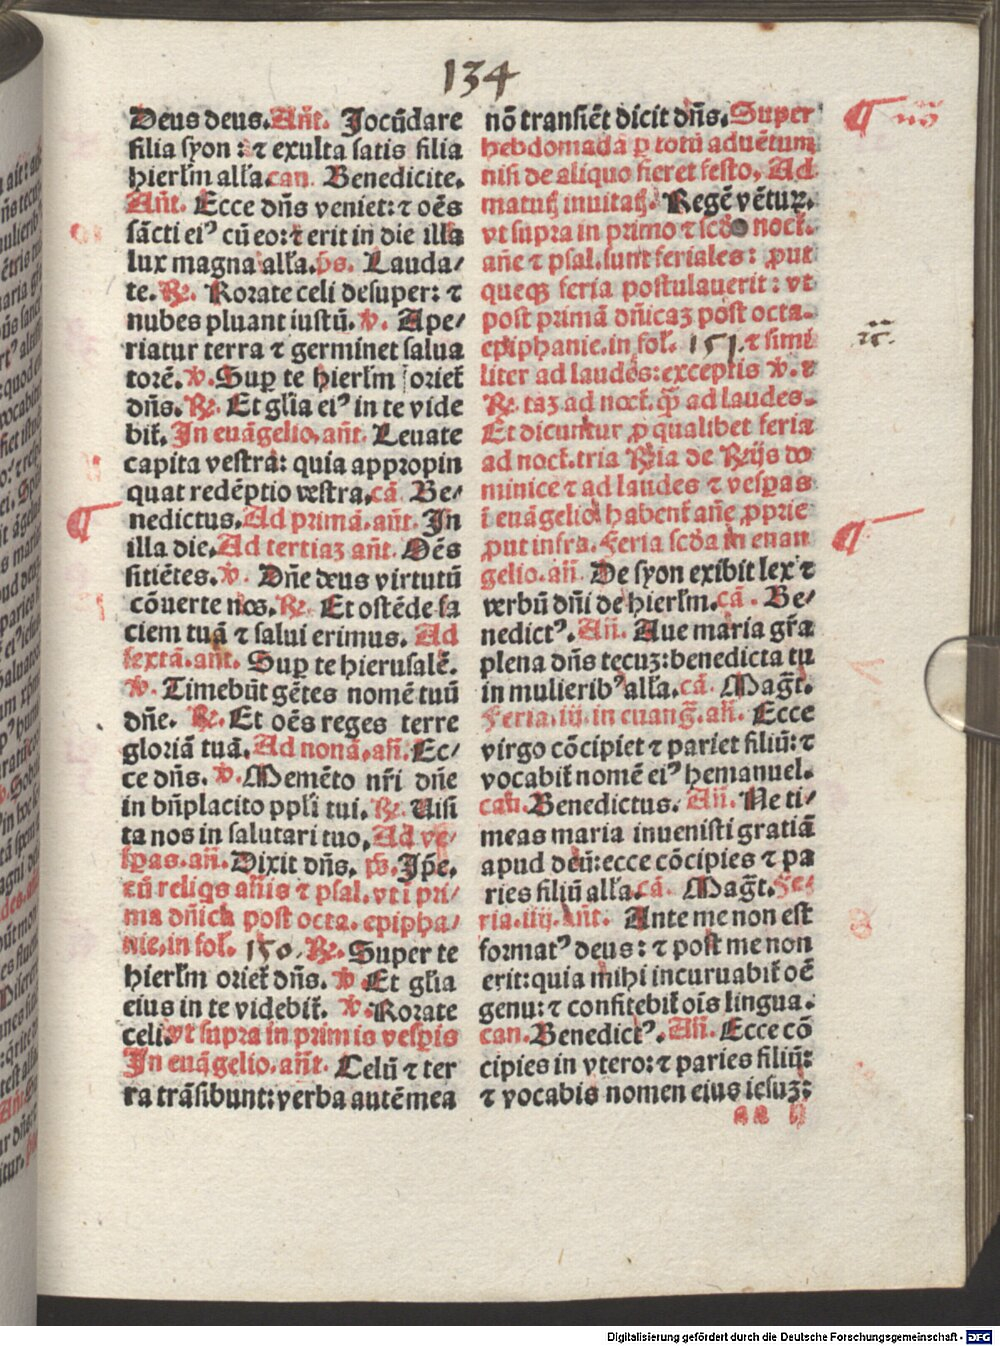 134
Deus deus. Añt. Jocũdare
filia syon: ⁊ exulta satis filia
hierl̃m all̃a. can. Benedicite.
Añt. Ecce dñs veniet: ⁊ oẽs
sãcti eiꝰ cũ eo: ⁊ erit in die illa
lux magna all̃a. p̃s. Lauda/
te. ℟. Rorate celi desuper: ⁊
nubes pluant iustũ. ℣. Ape/
riatur terra ⁊ germinet salua
torẽ. ℣. Suꝑ te hierl̃m orieť
dñs. ℟. Et gl̃ia eiꝰ in te vide
biť. In euãgelio. añt. Leuate
capita vestra: quia appropin
quat redẽptio vestra. cã. Be/
nedictus. Ad primã. añt. In
illa die. Ad tertiaꝫ añt. Oẽs
sitiẽtes. ℣. Dñe deus virtutũ
cõuerte nos. ℟. Et ostẽde fa
ciem tuã ⁊ salui erimus. Ad
sextã. añt. Suꝑ te hierusalẽ.
℣. Timebũt gẽtes nomẽ tuũ
dñe. ℟. Et oẽs reges terre
gloriã tuã. Ad nonã. añ. Ec/
ce dñs. ℣. Memẽto nr̃i dñe
in bñplacito ppl̃i tui. ℟. Uisi
ta nos in salutari tuo. Ad ve/
sꝑas. añ. Dixit dñs. p̃s. Ip̃e.
cũ reliqs añis ⁊ psal. vt ĩ pri/
ma dñica post octa. epipha/
nie, in fol. 150. ℟. Super te
hierl̃m orieť dñs. ℣. Et gl̃ia
eius in te videbiť. ℣. Rorate
celi. vt supra in primis vesꝑis
In euãgelio. añt. Celũ ⁊ ter
ra trãsibunt: verba autẽ mea
nõ transiẽt dicit dñs. Super
hebdomadã ꝑ totũ aduẽtum
nisi de aliquo fieret festo, Ad
matuť inuitať. Regẽ vẽtuꝝ.
vt supra in primo ⁊ scd̃o nocť.
añe ⁊ psal. sunt feriales: ꝓut
queqꝫ feria postulauerit: vt
post primã dñicaꝫ post octa.
epiphanie. in fol. 151. ⁊ simi
liter ad laudes: exceptis ℣. ⁊
℟. taꝫ ad nocť. q̃ꝫ ad laudes.
Et dicuntur ꝓ qualibet feria
ad nocť. tria ℟ia de ℟ijs do
minice ⁊ ad laudes ⁊ vesꝑas
ĩ euãgelio habenť añe ꝓprie
ꝓut infra. Feria scd̃a in euan
gelio. añ. De syon exibit lex ⁊
verbũ dñi de hierl̃m. cã. Be/
nedictꝰ. Añ. Aue maria gr̃a
plena dñs tecuꝫ: benedicta tu
in mulieribꝰ all̃a. cã. Mag̃t.
Feria. iij. in euang̃. añ. Ecce
virgo cõcipiet ⁊ pariet filiũ: ⁊
vocabiť nomẽ eiꝰ hemanuel.
can. Benedictus. Añ. Ne ti/
meas maria inuenisti gratiã
apud deũ: ecce cõcipies ⁊ pa
ries filiũ all̃a. cã. Mag̃t. Fe/
ria. iiij. añt. Ante me non est
formatꝰ deus: ⁊ post me non
erit: quia mihi incuruabiť oẽ
genu: ⁊ confitebiť oĩs lingua.
can. Benedictꝰ. Añ. Ecce cõ
cipies in vtero: ⁊ paries filiũ:
⁊ vocabis nomen eius iesuꝫ:
Digitalisierung gefördert durch die Deutsche Forschungsgemeinschaft - DFG